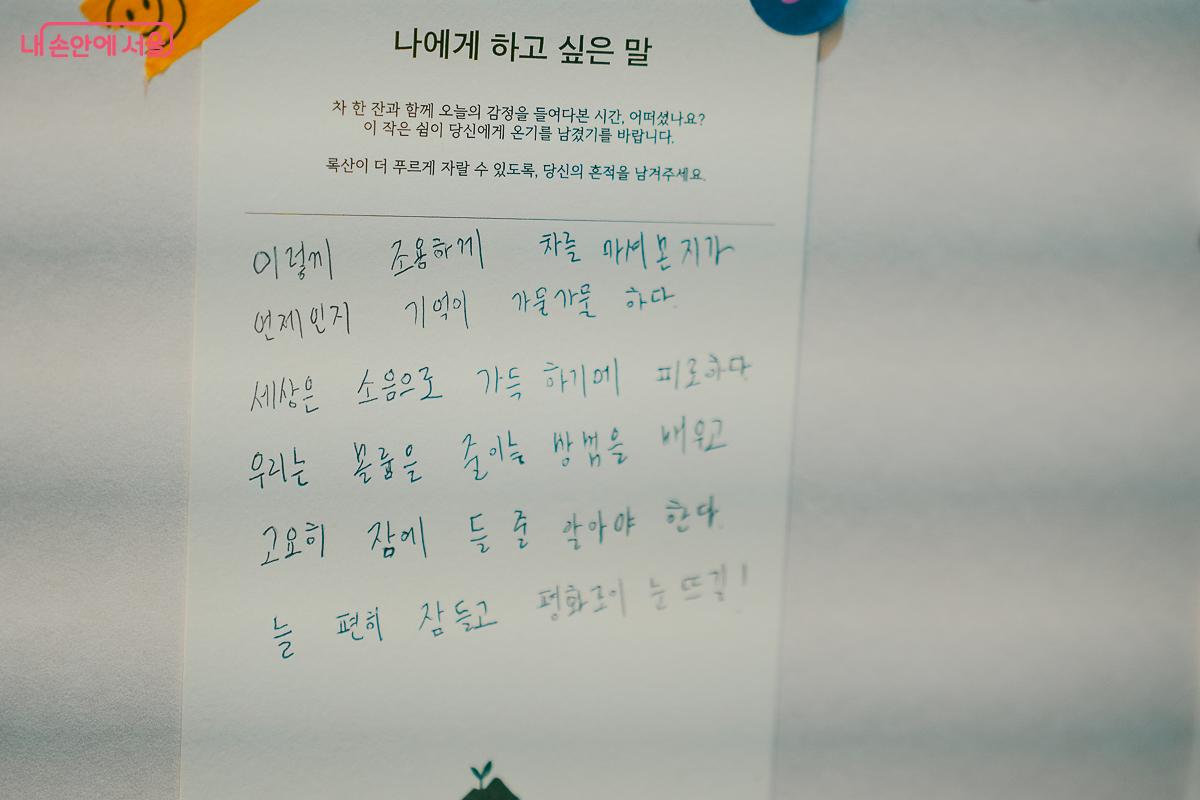 내 손안에 서울
나에게 하고 싶은 말
차 한 잔과 함께 오늘의 감정을 들여다본 시간, 어떠셨나요?
이 작은 쉼이 당신에게 온기를 남겼기를 바랍니다.
록산이 더 푸르게 자랄 수 있도록, 당신의 흔적을 남겨주세요.
이렇게 조용하게 차를 마셔본지가
언제인지 기억이 가물가물 하다.
세상은 소음으로 가득 하기에 피로하다
우리는 볼륨을 줄이는 방법을 배우고
고요히 잠에 들 줄 알아야 한다.
늘 편히 잠들고 평화로이 눈 뜨길!